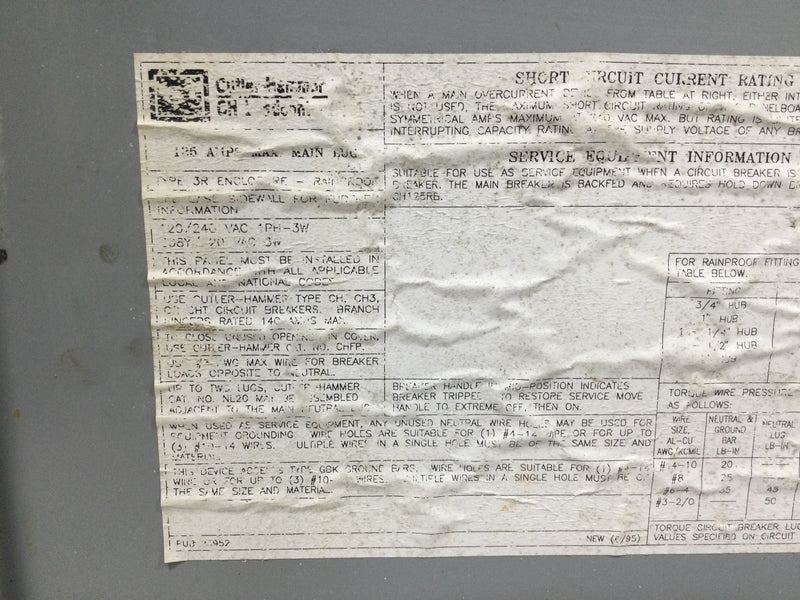 Cutler-Hammer
CH
SHORT CIRCUIT CURRENT RATING
WHEN A MAIN OVERCURRENT FROM TABLE AT RIGHT, EITHER INT
IS NOT USED, THE MAXIMUM SHORT CIRCUIT RATING
SYMMETRICAL AMPS MAXIMUM VAC MAX. BUT RATING IS
INTERRUPTING CAPACITY RATING SUPPLY VOLTAGE OF ANY
125 AMPS MAX. MAIN LUG
SERVICE EQUIPMENT INFORMATION
TYPE 3R ENCLOSURE - RAINPROOF
SIDEWALL FOR
INFORMATION
SUITABLE FOR USE AS SERVICE EQUIPMENT WHEN A CIRCUIT BREAKER IS
BREAKER. THE MAIN BREAKER IS BACKFED AND REQUIRES HOLD DOWN
CH125RB.
120/240 VAC 1PH-3W
VAC 3W
THIS PANEL MUST BE INSTALLED IN
ACCORDANCE WITH ALL APPLICABLE
LOCAL AND NATIONAL CODES
USE CUTLER-HAMMER TYPE CH, CH3,
OR CHT CIRCUIT BREAKERS. BRANCH
RATED 140 AMPS MAX.
TO CLOSE UNUSED OPENING IN COVER,
USE CUTLER-HAMMER CAT. NO. CHFP.
MAX WIRE FOR BREAKER
LOADS OPPOSITE TO NEUTRAL.
UP TO TWO LUGS, CUTLER-HAMMER
CAT. NO. NL20 MAY BE ASSEMBLED
ADJACENT TO THE MAIN NEUTRAL
BREAKER HANDLE IN MID-POSITION INDICATES
BREAKER TRIPPED. TO RESTORE SERVICE MOVE
HANDLE TO EXTREME OFF, THEN ON.
WHEN USED AS SERVICE EQUIPMENT, ANY UNUSED NEUTRAL WIRE HOLES MAY BE USED FOR
EQUIPMENT GROUNDING. WIRE HOLES ARE SUITABLE FOR (1) #4-14 WIRE OR FOR UP TO
(3) #10-14 WIRES. MULTIPLE WIRES IN A SINGLE HOLE MUST BE OF THE SAME SIZE AND
MATERIAL.
THIS DEVICE ACCEPTS TYPE GBK GROUND BARS. WIRE HOLES ARE SUITABLE FOR (1)
WIRE OR FOR UP TO (3) #10- WIRES. MULTIPLE WIRES IN A SINGLE HOLE MUST BE OF
THE SAME SIZE AND MATERIAL.
NEW (6/95)
FOR RAINPROOF FITTING
TABLE BELOW.
FITTING
3/4" HUB
1" HUB
1 - 1/4" HUB
1/2" HUB
TORQUE WIRE PRESSURE
AS FOLLOWS:
WIRE SIZE AL-CU AWG/KCMIL
NEUTRAL & GROUND BAR LB-IN
NEUTRAL LUG LB-IN
#14-10 20
#8 25
#6-4 35 45
#3-2/0 50
TORQUE CIRCUIT BREAKER LUG
VALUES SPECIFIED ON CIRCUIT